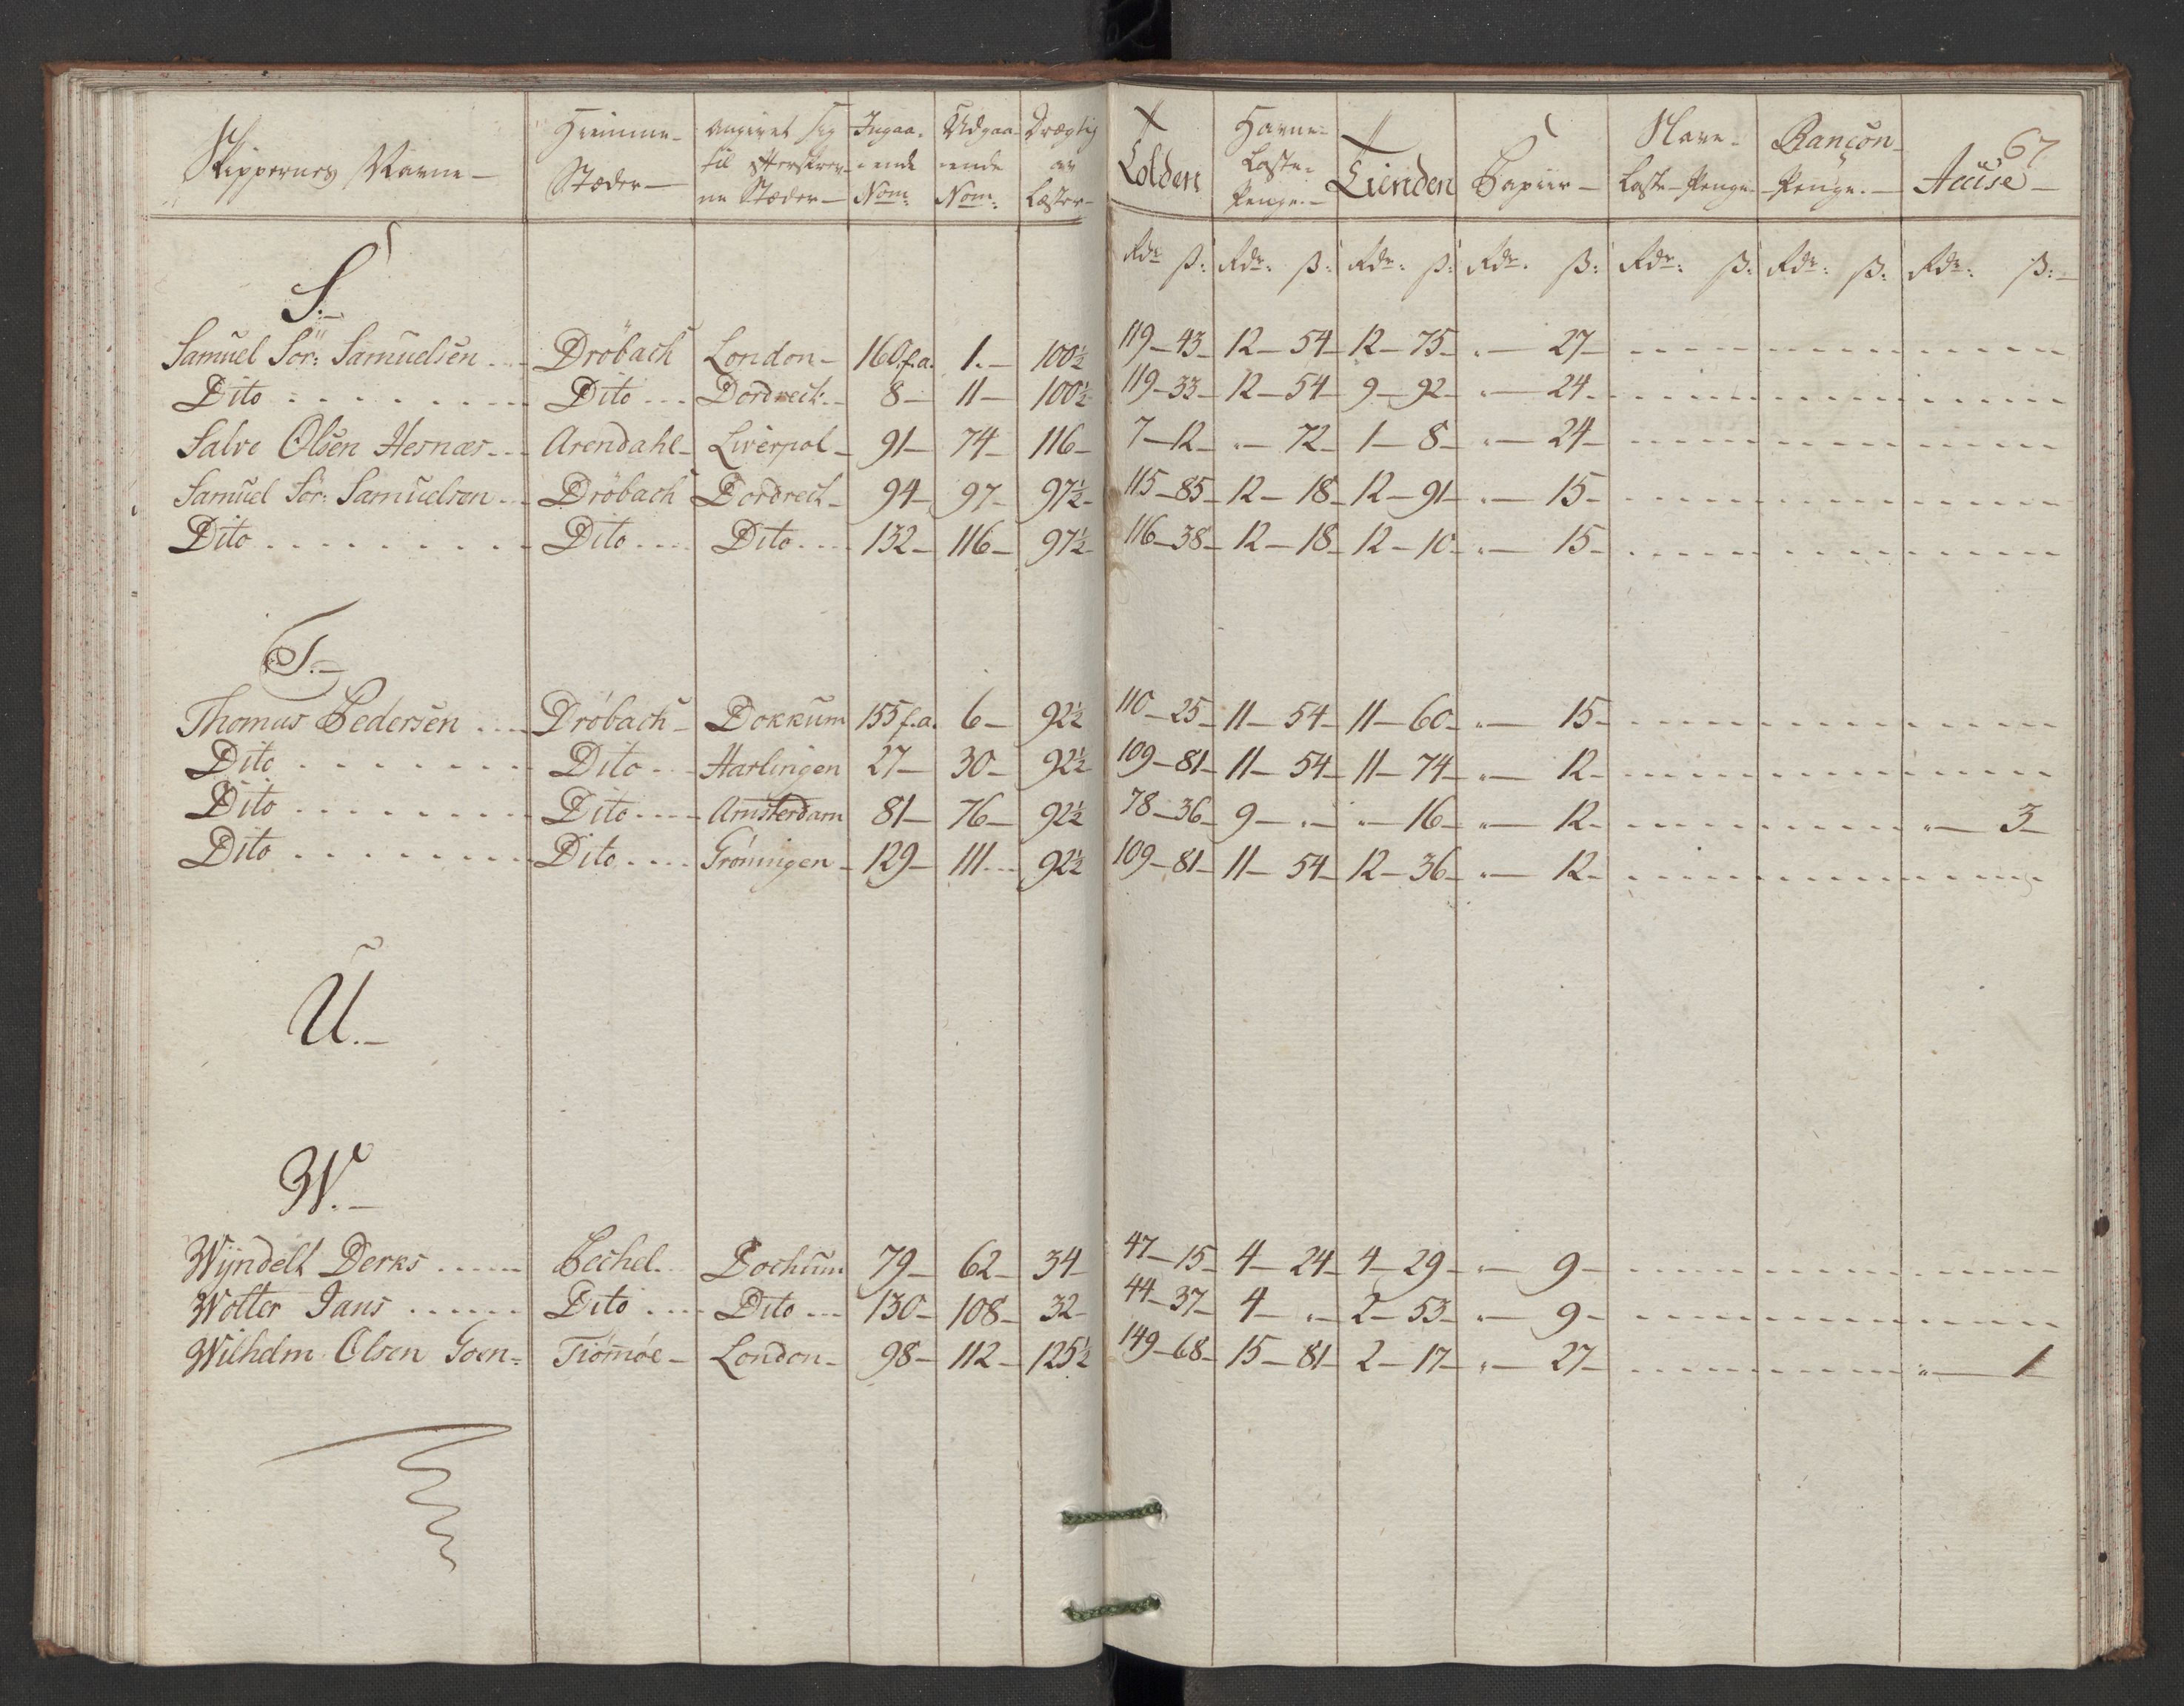 Skippernes Navne — | Hiemme-Stæder — | Angivet sig til efterskrevne Stæder — | Ingaaende Nom: | Udgaaende Nom: | Drægtig av Læster — | Tolden | Havne-Laste-Penge — | Tienden | Papiir — | Slave-Laste-Penge | Rançon-Penge — | Accise —
67
Rdr ß: | Rdr: ß: | Rdr: ß: | Rdr. ß: | Rdr: ß: | Rdr: ß: | Rdr: ß: —
S. —
Samuel Sör: Samuelsen | Dröbach | London — | 160 f.a. | 1. — | 100½ | 119 — 43 | 12 — 54 | 12 — 75 | " — 27
Dito | Dito | Dordrect | 8 — | 11 — | 100½ | 119 — 33 | 12 — 54 | 9 — 92 | " — 24
Salve Olsen Hesnæs | Arendahl | Liverpol | 91 — | 74 — | 116 — | 7 — 12 | " — 72 | 1 — 8 | " — 24
Samuel Sör: Samuelsen | Dröbach | Dordrect | 94 — | 97 — | 97½ | 115 — 85 | 12 — 18 | 12 — 91 | " — 15
Dito | Dito | Dito | 132 — | 116 — | 97½ | 116 — 38 | 12 — 18 | 12 — 10 | " — 15
T. —
Thomas Pedersen | Dröbach | Dokkum | 155 f.a. | 6 — | 92½ | 110 — 25 | 11 — 54 | 11 — 60 | " — 15
Dito | Dito | Harlingen | 27 — | 30 — | 92½ | 109 — 81 | 11 — 54 | 11 — 74 | " — 12
Dito | Dito | Amsterdam | 81 — | 76 — | 92½ | 78 — 36 | 9 — " | " — 16 | " — 12 | " — 3
Dito | Dito | Gröningen | 129 — | 111 | 92½ | 109 — 81 | 11 — 54 | 12 — 36 | " — 12
U. —
W. —
Wyndelt Derks | Pechel | Dochum | 79 — | 62 — | 34 | 47 — 15 | 4 — 24 | 4 — 29 | " — 9
Wolter Jans | Dito | Dito | 130 — | 108 — | 32 — | 44 — 37 | 4 — " | 2 — 53 | " — 9
Wilhelm Olsen Goen= | Tiömöe | London | 98 — | 112 — | 125½ | 149 — 68 | 15 — 81 | 2 — 17 | " — 27 | " — 1